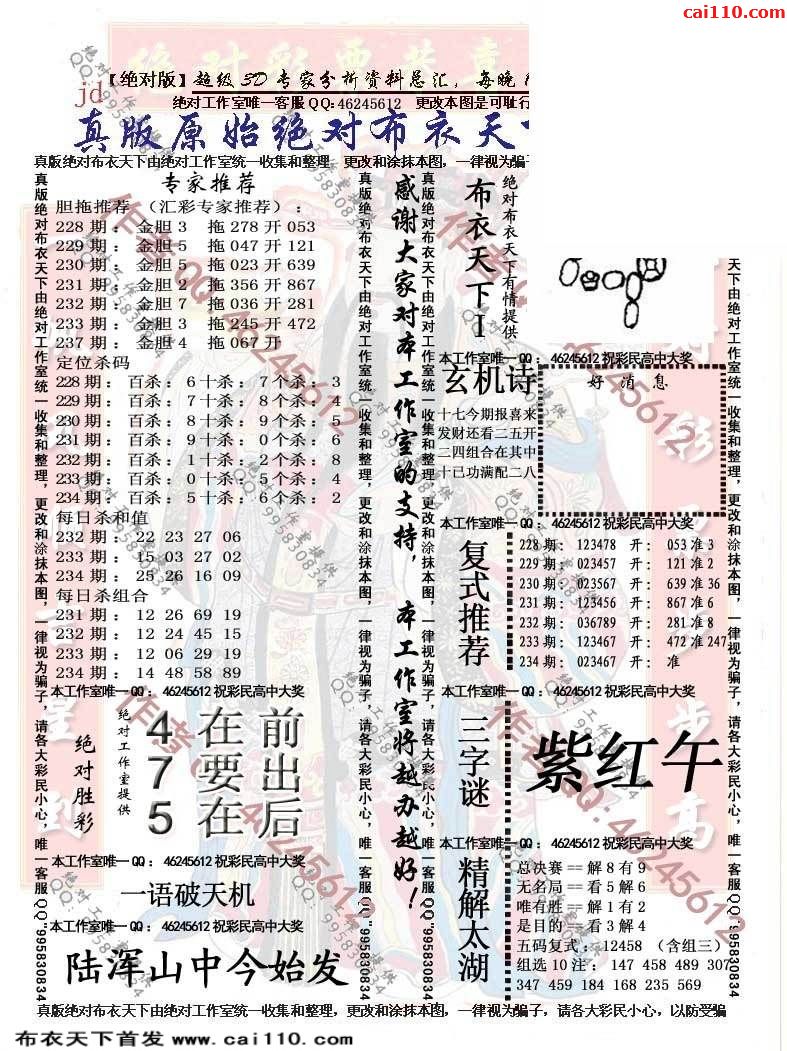 cai110.com
【绝对版】超级3D专家分析资料总汇，每晚
jd
绝对工作室唯一客服QQ:46245612 更改本图是可耻行
真版原始绝对布衣天
真版绝对布衣天下由绝对工作室统一收集和整理，更改和涂抹本图，一律视为骗
真版绝对布衣天下由绝对工作室统一收集和整理，更改和涂抹本图，一律视为骗子，请各大彩民小心，唯一客服QQ"995830834
专家推荐
胆拖推荐 （汇彩专家推荐）：
228期： 金胆3 拖278开053
229期： 金胆5 拖047开121
230期： 金胆5 拖023开639
231期： 金胆2 拖356开867
232期： 金胆7 拖036开281
233期： 金胆3 拖245开472
237期： 金胆4 拖067开
定位杀码
228期： 百杀：6十杀：7个杀：3
229期： 百杀：7十杀：8个杀：4
230期： 百杀：8十杀：9个杀：5
231期： 百杀：9十杀：0个杀：6
232期： 百杀：1十杀：2个杀：8
233期： 百杀：0十杀：5个杀：4
234期： 百杀：5十杀：6个杀：2
每日杀和值
232期： 22 23 27 06
233期： 15 03 27 02
234期： 25 26 16 09
每日杀组合
231期： 12 26 69 19
232期： 12 24 45 15
233期： 12 06 29 19
234期： 14 48 58 89
本工作室唯一QQ：46245612祝彩民高中大奖
绝对胜彩
绝对工作室提供
4在前
7要出
5在后
本工作室唯一QQ：46245612祝彩民高中大奖
一语破天机
本工作室唯一QQ：46245612祝彩民高中大奖
陆浑山中今始发
真版绝对布衣天下由绝对工作室统一收集和整理，更改和涂抹本图，一律视为骗子，请各大彩民小心，唯一客服QQ"995830834
感谢大家对本工作室的支持，本工作室将越办越好！
真版绝对布衣天下由绝对工作室统一收集和整理，更改和涂抹本图，一律视为骗子，请各大彩民小心，唯一客服QQ"995830834
布衣天下I
绝对布衣天下有情提供
本工作室唯一QQ：46245612祝彩民高中大奖
玄机诗
十七今期报喜来
发财还看二五开
二四组合在其中
十已功满配二八
好消息
本工作室唯一QQ：46245612祝彩民高中大奖
复式推荐
228期： 123478 开： 053准3
229期： 023457 开： 121准2
230期： 023567 开： 639准36
231期： 123456 开： 867准6
232期： 036789 开： 281准8
233期： 123467 开： 472准247
234期： 023467 开： 准
本工作室唯一QQ：46245612祝彩民高中大奖
三字谜
紫红午
本工作室唯一QQ：46245612祝彩民高中大奖
精解太湖
总决赛==解8有9
无名局==看5解6
唯有胜==解1有2
是目的==看3解4
五码复式：12458 （含组三）
组选10注： 147 458 489 307
347 459 184 168 235 569
天下由绝对工作室统一收集和整理，更改和涂抹本图，一律视为骗子，请各大彩民小心，唯一客服QQ"995830834
真版绝对布衣天下由绝对工作室统一收集和整理，更改和涂抹本图，一律视为骗子，请各大彩民小心，以防受骗
布衣天下首发 www.cai110.com